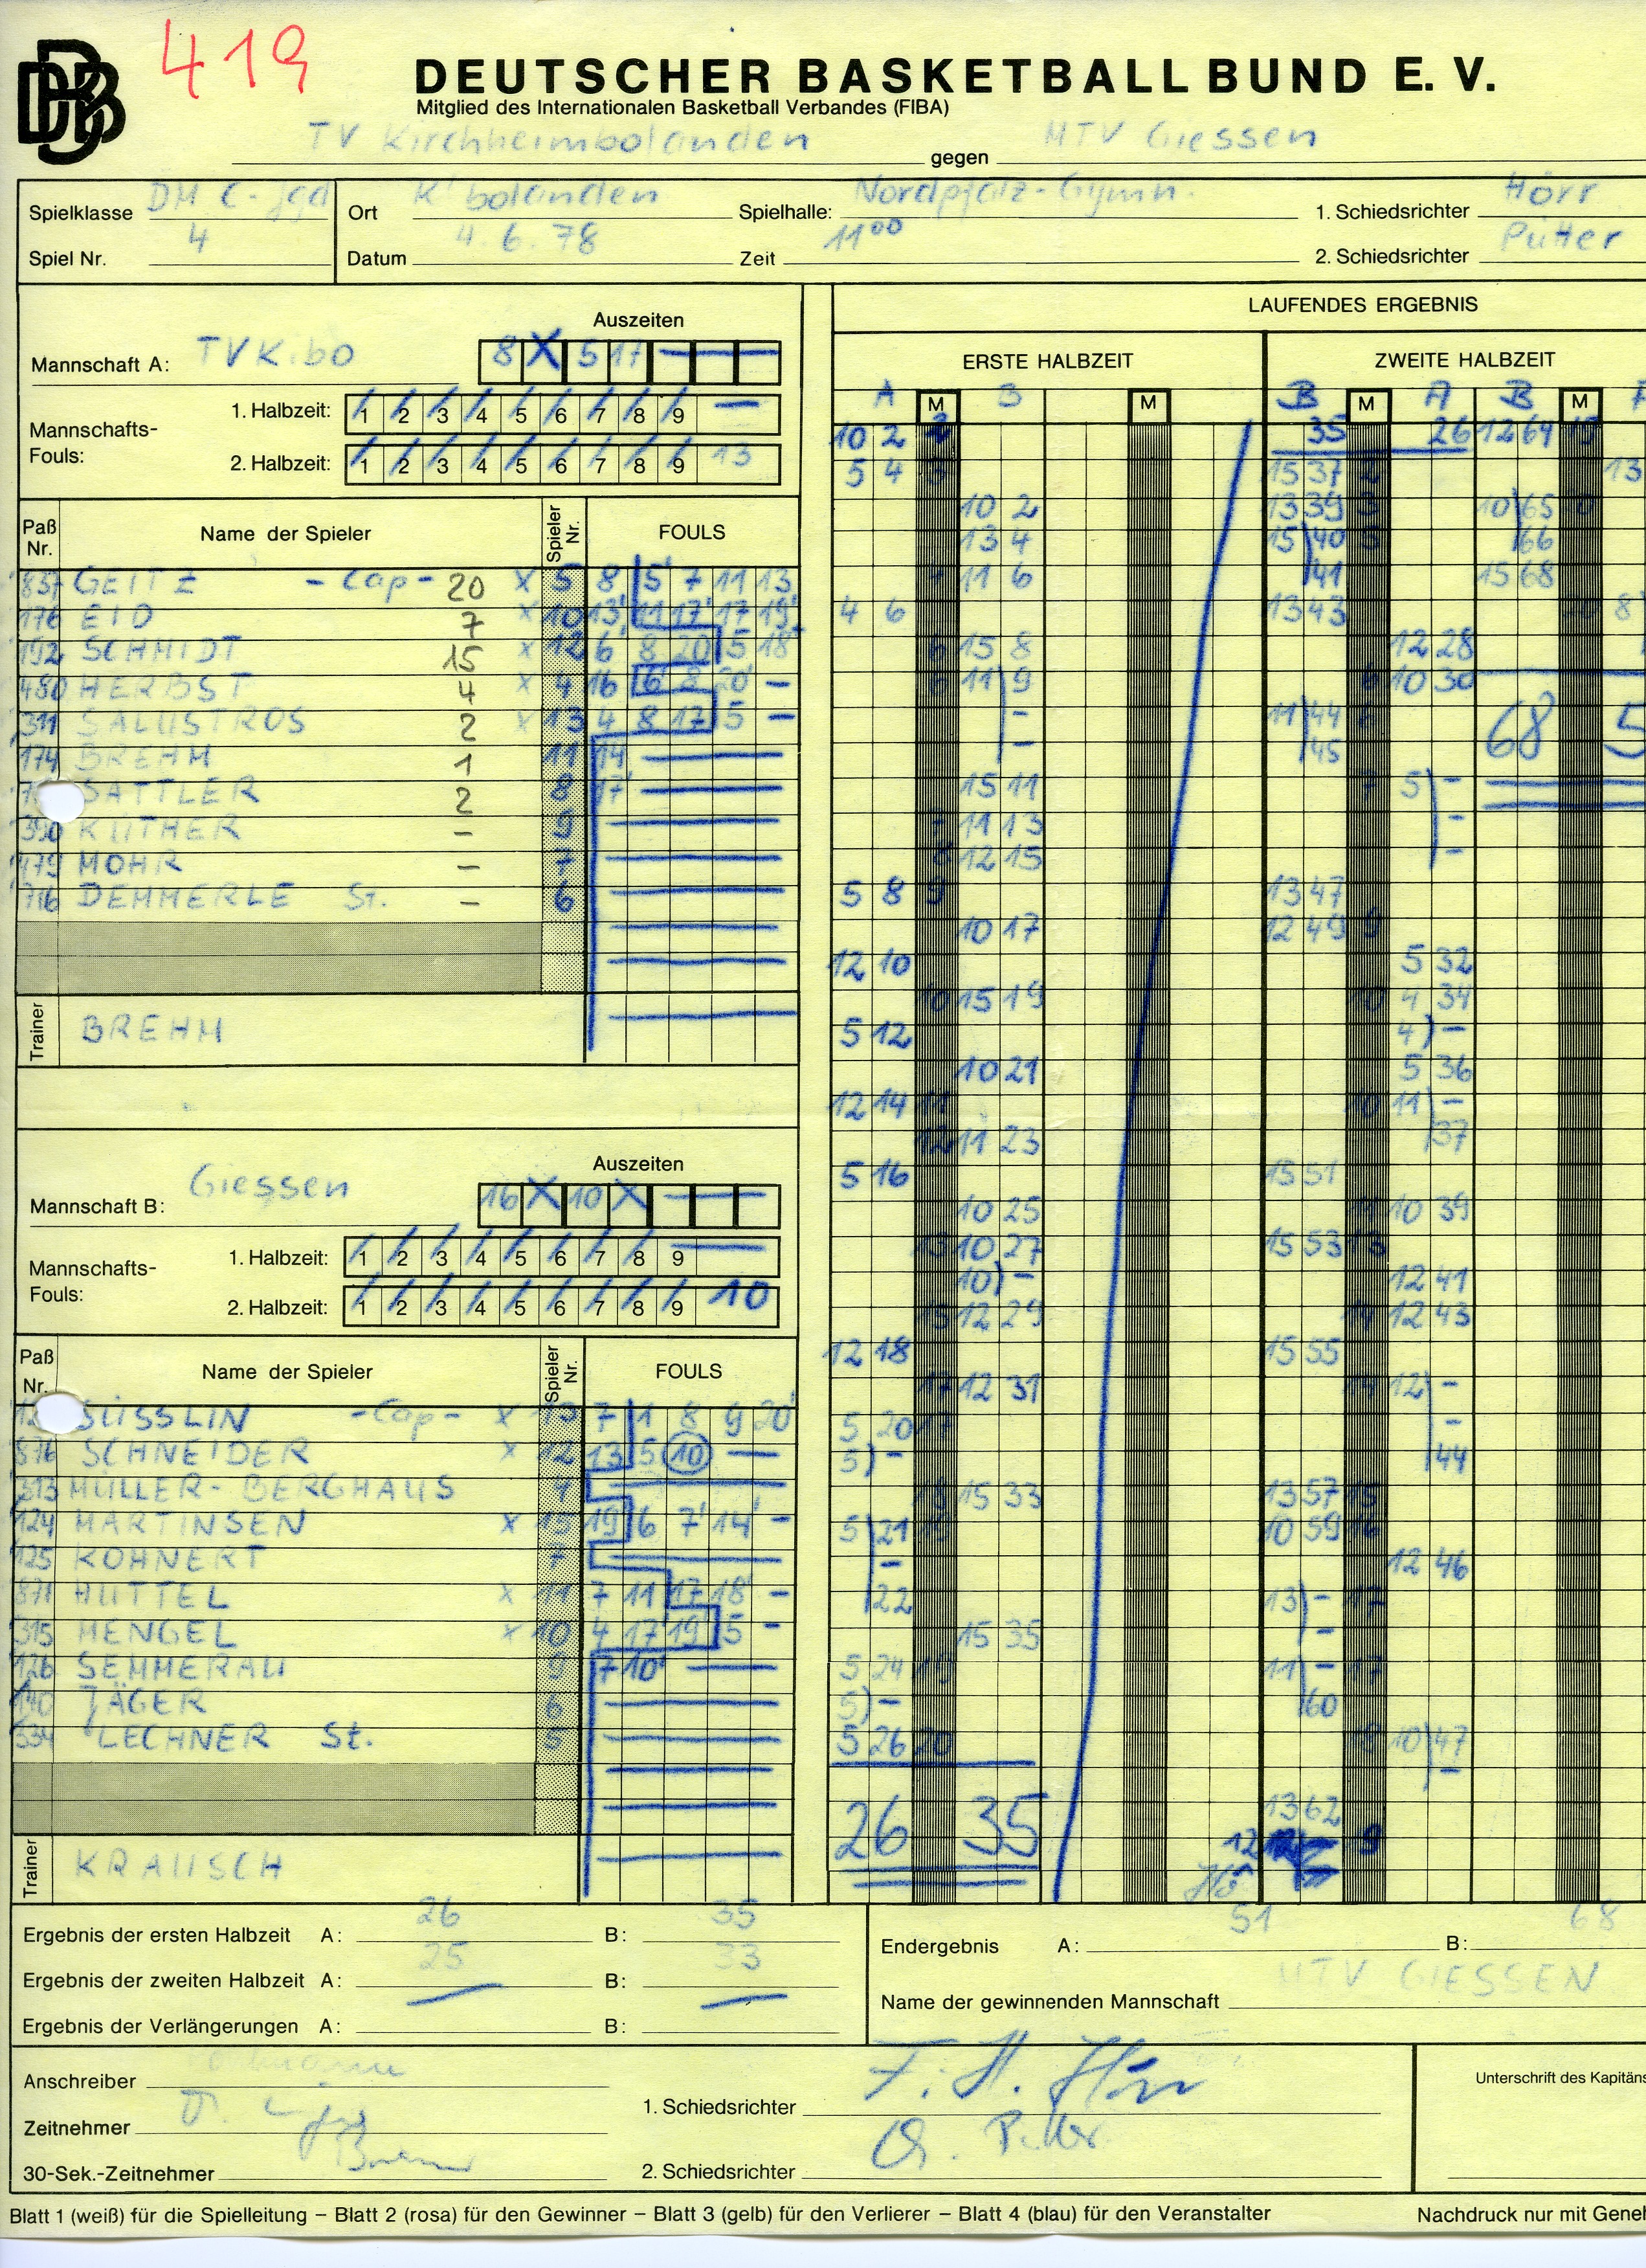 419
DBB
DEUTSCHER BASKETBALL BUND E. V.
Mitglied des Internationalen Basketball Verbandes (FIBA)
TV Kirchheimbolanden gegen MTV Giessen
Spielklasse DM C-Jgd Ort K'bolanden Spielhalle: Nordpfalz-Gymn. 1. Schiedsrichter Hörr
Spiel Nr. 4 Datum 4.6.78 Zeit 11⁰⁰ 2. Schiedsrichter Pütter
Auszeiten
Mannschaft A: TV K.bo 8 X 5 17
Mannschafts-Fouls:
1. Halbzeit: 1 2 3 4 5 6 7 8 9 —
2. Halbzeit: 1 2 3 4 5 6 7 8 9 13
Paß Nr. Name der Spieler Spieler Nr. FOULS
837 GEITZ - Cap - 20 x 5 8 5' 7 11 13
176 EID 7 x 10 13' 11 17' 17 19'
192 SCHMIDT 15 x 12 6' 8 20 5 18'
480 HERBST 4 x 4 16 6' 8 20' —
311 SALUSTROS 2 x 13 4 8 17 5 —
174 BREHM 1 11 14 —
SATTLER 2 8 17' —
390 KÜTHER - 9 —
479 MOHR - 7 —
716 DEMMERLE St. - 6 —
Trainer BREHM
Auszeiten
Mannschaft B: Giessen 16 X 10 X
Mannschafts-Fouls:
1. Halbzeit: 1 2 3 4 5 6 7 8 9 —
2. Halbzeit: 1 2 3 4 5 6 7 8 9 10
Paß Nr. Name der Spieler Spieler Nr. FOULS
SÜSSLIN - Cap - x 13 7 1 8 9 20'
876 SCHNEIDER x 12 13 5 10 —
313 MÜLLER-BERGHAUS 4 —
124 MARTINSEN x 15 19 6 7' 14' —
125 KOHNERT 7 —
871 HÜTTEL x 11 7 11 17 18' —
315 MENGEL x 10 4 17 19' 5 —
126 SEMMERAU 9 7 10' —
140 JÄGER 6 —
334 LECHNER St. 5 —
Trainer KRAUSCH
LAUFENDES ERGEBNIS
ERSTE HALBZEIT
A M B M
10 2 2
5 4 3
10 2
13 4
11 6
4 6
6 15 8
6 11 9
–
–
15 11
7 11 13
8 12 15
5 8 9
10 17
12 10
10 15 19
5 12
10 21
12 14 11
12 11 23
5 16
10 25
13 10 27
10 ) –
15 12 29
12 18
17 12 31
5 20 17
5 ) –
18 15 33
5 21
–
22
15 35
5 24 19
5 ) –
5 26 20
26 35
ZWEITE HALBZEIT
B M A B M
35 26
15 37 2
13 39 3
15 40 5
41
13 43
12 28
6 10 30
11 44 6
45
7 5 –
–
–
13 47
12 49 9
5 32
10 4 34
4 ) –
5 36
10 11 –
37
15 51
11 10 39
15 53 13
12 41
14 12 43
15 55
14 12 –
–
44
13 57 15
10 59 16
12 46
13 – 17
–
11 – 17
60
18 10 47
–
13 62
12
12 64 19
13
10 65
66
15 68
8
68 5
Ergebnis der ersten Halbzeit A: 26 B: 35
Ergebnis der zweiten Halbzeit A: 25 B: 33
Ergebnis der Verlängerungen A: — B: —
Endergebnis A: 51 B: 68
Name der gewinnenden Mannschaft MTV GIESSEN
Anschreiber
Zeitnehmer
30-Sek.-Zeitnehmer
1. Schiedsrichter
2. Schiedsrichter
Unterschrift des Kapitäns
Blatt 1 (weiß) für die Spielleitung – Blatt 2 (rosa) für den Gewinner – Blatt 3 (gelb) für den Verlierer – Blatt 4 (blau) für den Veranstalter
Nachdruck nur mit Geneh